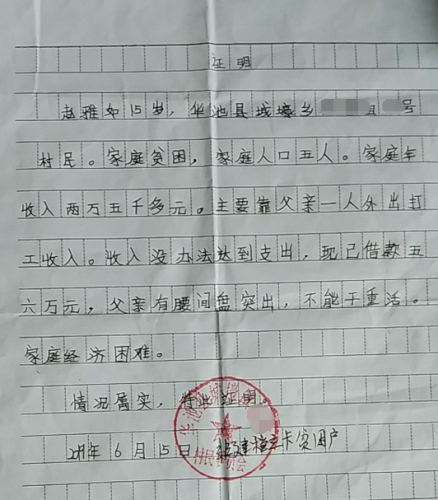 证明
赵雅如15岁，华池县城壕乡 号
村民。家庭贫困，家庭人口五人。家庭年
收入两万五千多元。主要靠父亲一人外出打
工收入。收入没办法达到支出，现已借款五
六万元，父亲有腰间盘突出，不能干重活。
家庭经济困难。
情况属实，特此证明。
年6月15日 建档立卡贫困户
华池县城壕
村民委员会